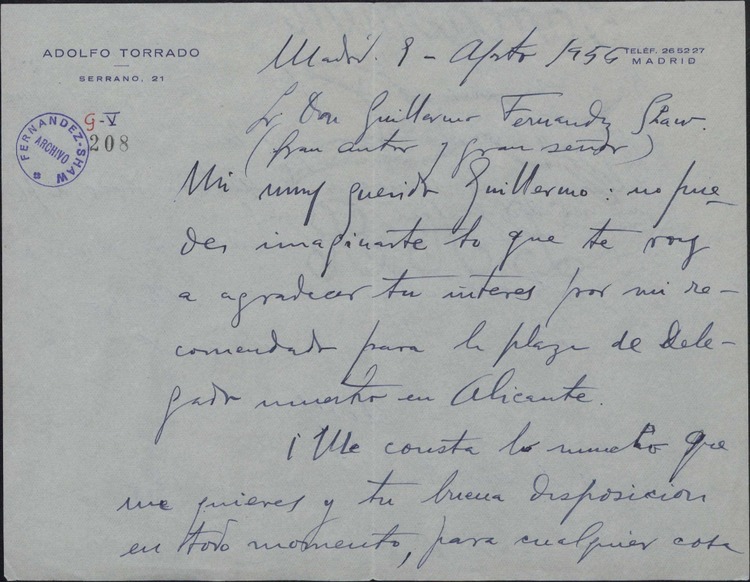 ADOLFO TORRADO
SERRANO, 21
TELÉF. 26 52 27
MADRID
Madrid. 8 - Agosto 1956
FERNANDEZ-SHAW
ARCHIVO
G-V
208
Sr Don Guillermo Fernandez Shaw.
(gran autor y gran señor)
Mi muy querido Guillermo: no pue-
des imaginarte lo que te voy
a agradecer tu interes por mi re-
comendado para la plaza de Dele-
gado nuestro en Alicante.
¡Me consta lo mucho que
me quieres y tu buena disposicion
en todo momento, para cualquier cosa